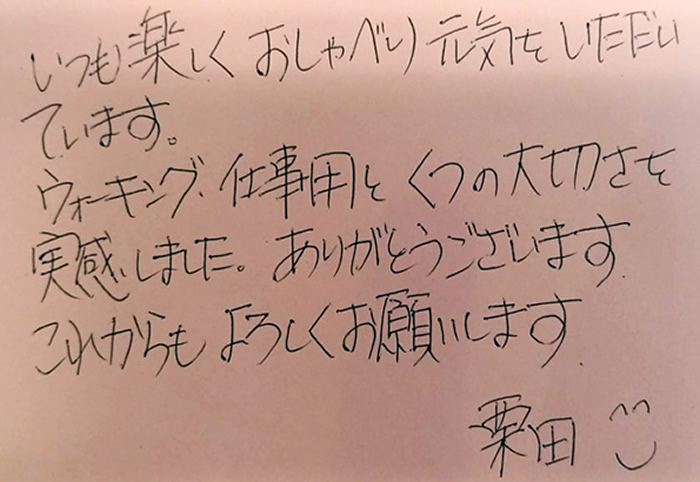 いつも楽しくおしゃべり元気をいただい
ています。
ウォーキング、仕事用とくつの大切さを
実感しました。ありがとうございます
これからもよろしくお願いします
栗田